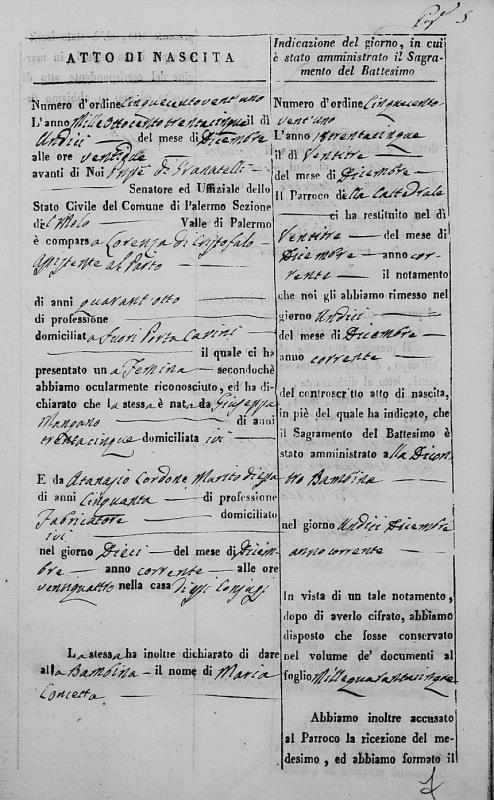 5
ATTO DI NASCITA
Numero d'ordine Cinquecentovent'uno
L'anno Mille Ottocento trentacinque il dì
Undici del mese di Dicembre
alle ore ventique
avanti di Noi Pnpē di Granatelli
Senatore ed Uffiziale dello
Stato Civile del Comune di Palermo Sezione
del Molo Valle di Palermo
è comparsa Lorenza di Cristofalo
Assistente al Parto
di anni quarant'otto
di professione
domiciliata Fuori Porta Carini
il quale ci ha
presentato una Femina secondochè
abbiamo ocularmente riconosciuto, ed ha di-
chiarato che la stessa è nata da Giuseppa
Mangano di anni
trentacinque domiciliata ivi
E da Atanasio Cordone Marito di essa
di anni Cinquanta di professione
Fabricatore domiciliato
ivi
nel giorno Dieci del mese di Dicem-
bre anno corrente alle ore
ventiquattro nella casa di essi Conjugi
La stessa ha inoltre dichiarato di dare
alla Bambina il nome di Maria
Concetta
Indicazione del giorno, in cui
è stato amministrato il Sagra-
mento del Battesimo
Numero d'ordine Cinquecento
vent'uno
L'anno 18trentacinque
il dì Ventitre
del mese di Dicembre
Il Parroco della Cattedrale
ci ha restituito nel dì
Ventitre del mese di
Dicembre anno cor-
rente il notamento
che noi gli abbiamo rimesso nel
giorno Undici
del mese di Dicembre
anno corrente
del controscritto atto di nascita,
in piè del quale ha indicato, che
il Sagramento del Battesimo è
stato amministrato alla Dicon-
tro Bambina
nel giorno Undici Dicembre
anno corrente
In vista di un tale notamento,
dopo di averlo cifrato, abbiamo
disposto che fosse conservato
nel volume de' documenti al
foglio Millequarantacinque
Abbiamo inoltre accusato
al Parroco la ricezione del me-
desimo, ed abbiamo formato il